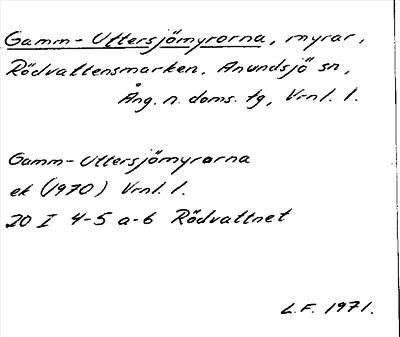 Gamm-Uttersjömyrorna, myrar,
Rödvattensmarken, Anundsjö sn,
Ång. n. doms. tg, Vrnl. l.
Gamm-Uttersjömyrarna
ek (1970) Vrnl. l.
20 I 4-5 a-6 Rödvattnet
L.F. 1971.